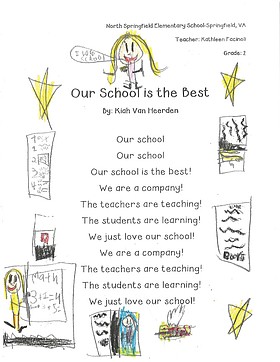 North Springfield Elementary School-Springfield, VA
Teacher: Kathleen Facinoli
Grade: 2
Our School is the Best
By: Kiah Van Heerden
Our school
Our school
Our school is the best!
We are a company!
The teachers are teaching!
The students are learning!
We just love our school!
We are a company!
The teachers are teaching!
The students are learning!
We just love our school!
Math